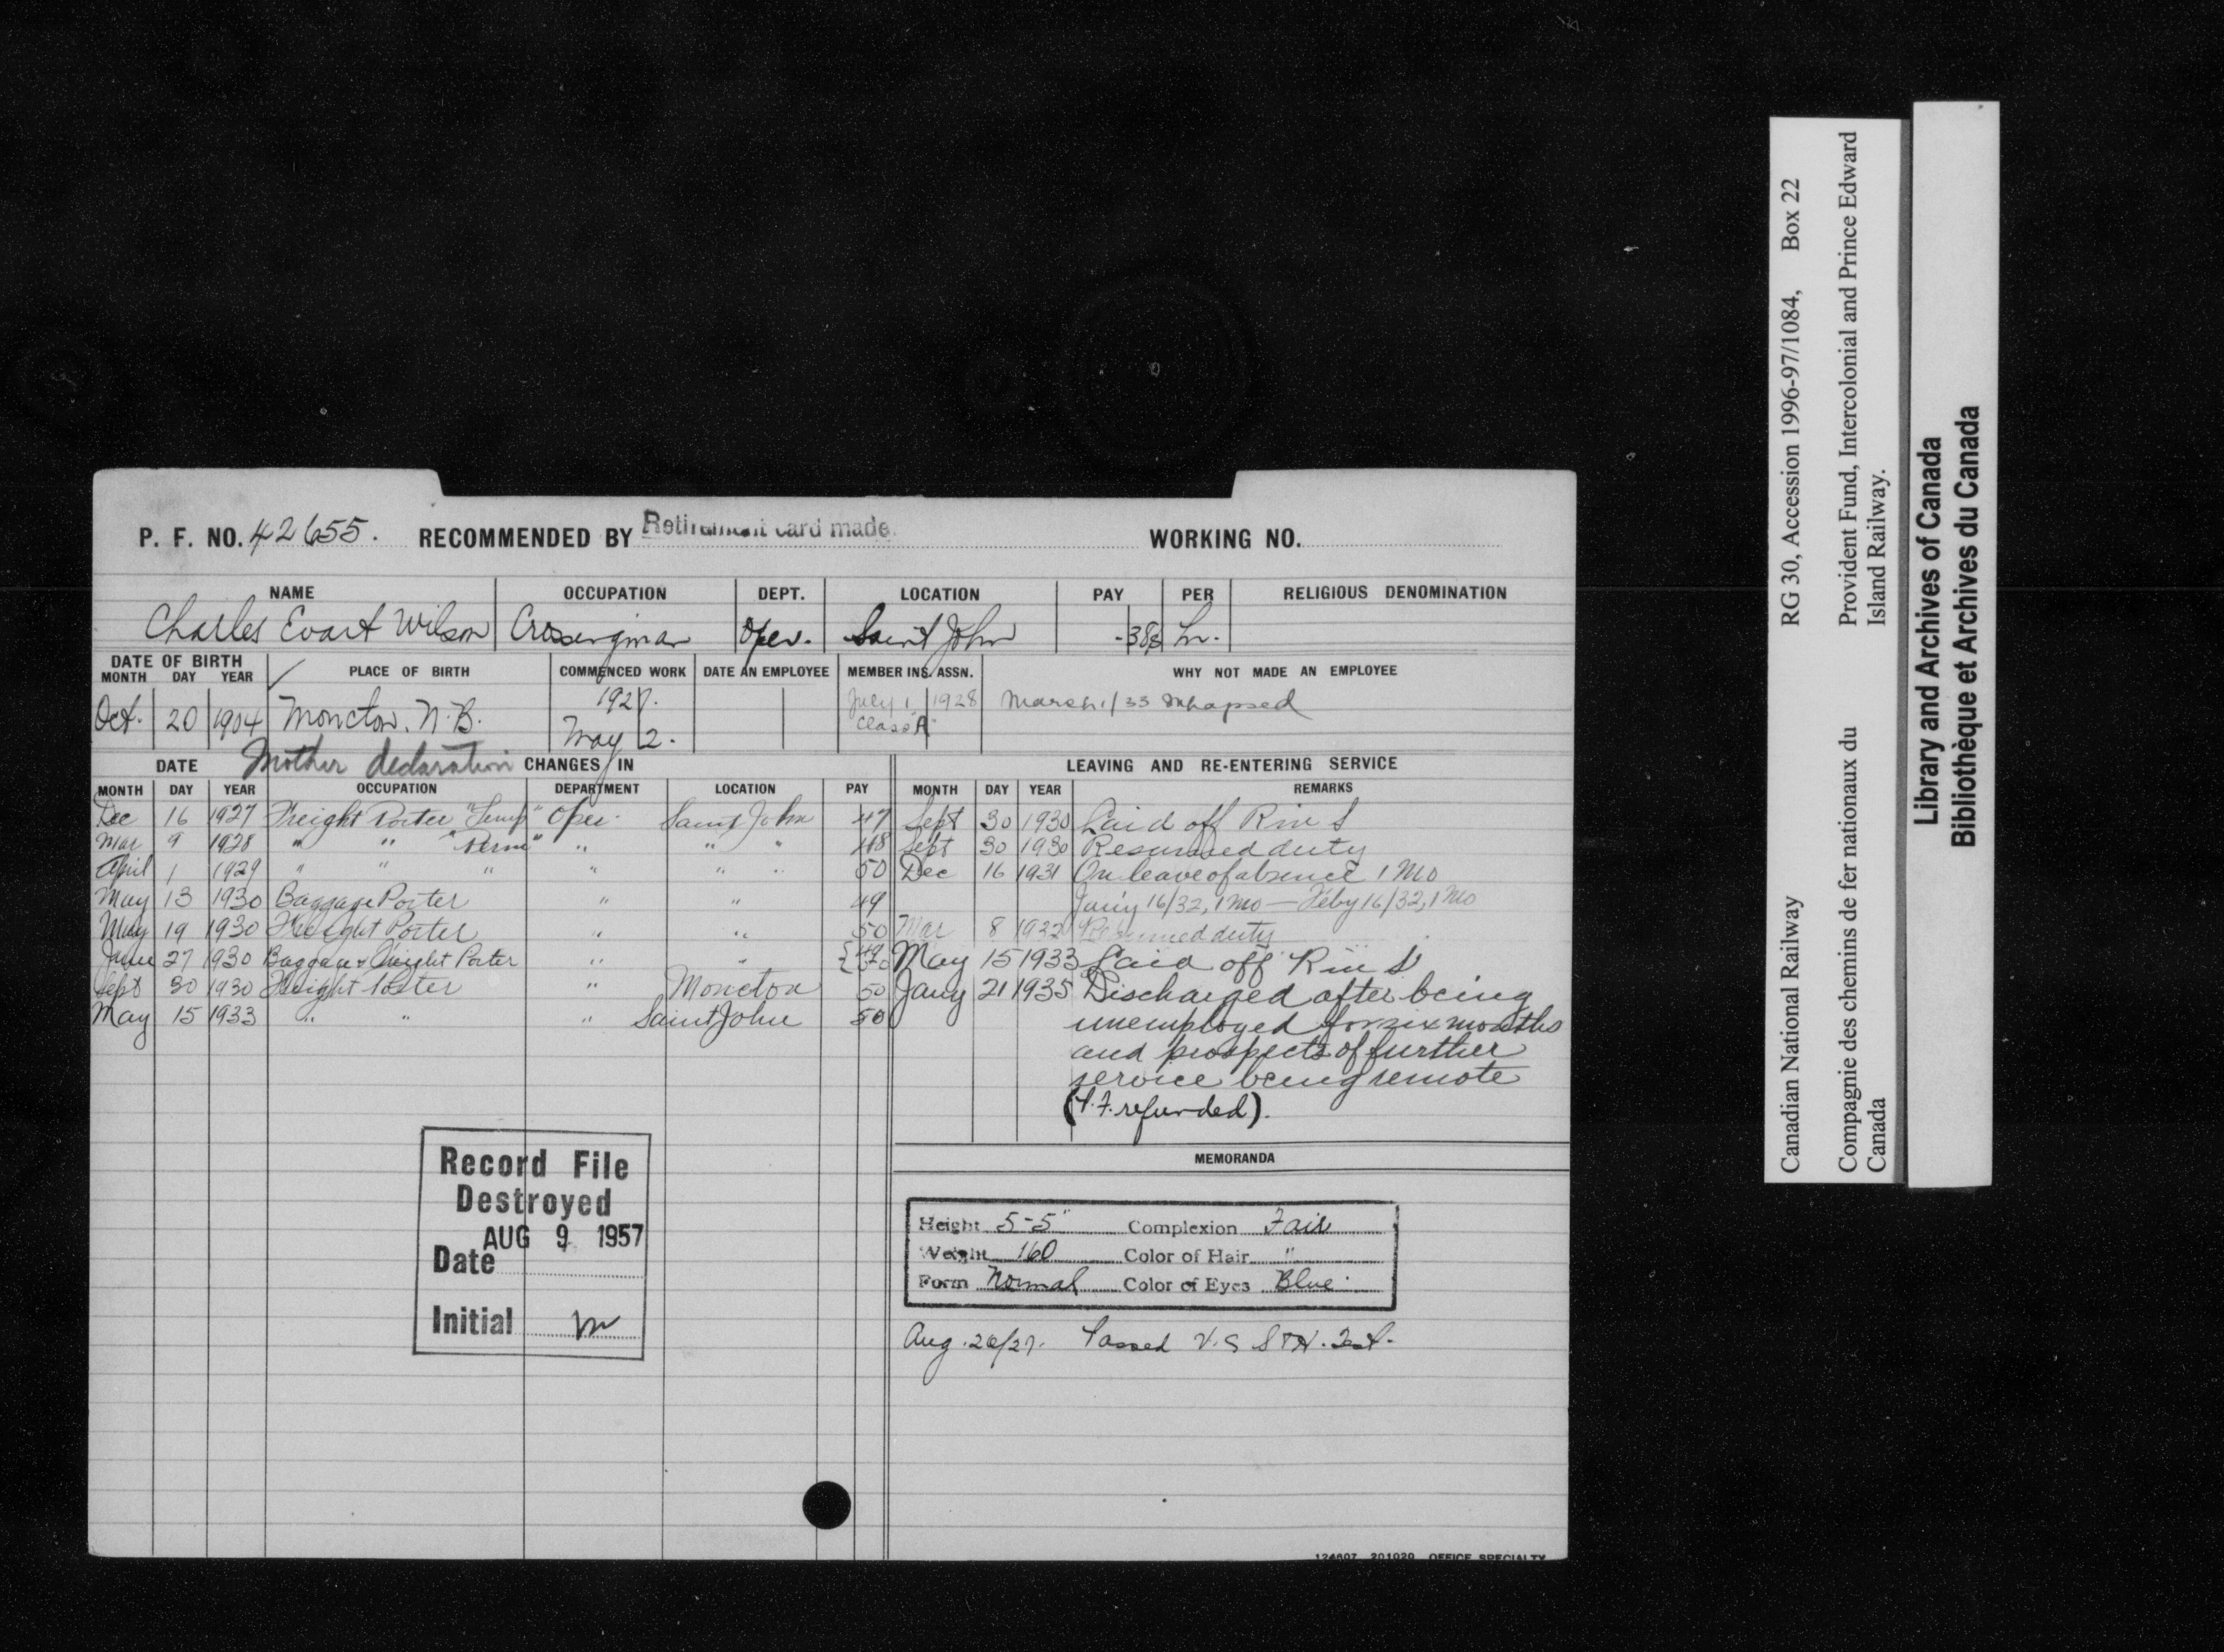 P. F. NO. 42655. RECOMMENDED BY Retirement card made. WORKING NO.
NAME OCCUPATION DEPT. LOCATION PAY PER RELIGIOUS DENOMINATION
Charles Evart Wilson Crossingman Oper. Saint John .38¢ hr.
DATE OF BIRTH PLACE OF BIRTH COMMENCED WORK DATE AN EMPLOYEE MEMBER INS. ASSN. WHY NOT MADE AN EMPLOYEE
MONTH DAY YEAR
Oct. 20 1904 Moncton. N.B. 1927. May 2. July 1 1928 Class "A" March 1/33
DATE Mother declaration CHANGES IN LEAVING AND RE-ENTERING SERVICE
MONTH DAY YEAR OCCUPATION DEPARTMENT LOCATION PAY MONTH DAY YEAR REMARKS
Dec 16 1927 Freight Porter "Temp" Oper. Saint John 47 Sept 30 1930 Laid off Rin S
Mar 9 1928 " " "Perm" " " " 48 Sept 30 1930 Resumed duty
April 1 1929 " " " " " " 50 Dec 16 1931 On leave of absence 1 Mo
May 13 1930 Baggage Porter " " 49 Jany 16/32, 1 Mo — Feby 16/32, 1 Mo
May 19 1930 Freight Porter " " 50 Mar 8 1932 Resumed duty
June 27 1930 Baggage & Freight Porter " " May 15 1933 Laid off Rin S
Sept 30 1930 Freight Porter " Moncton 50 Jany 21 1935 Discharged after being
May 15 1933 " " " Saint John 50 unemployed for six months
and prospects of further
service being remote
(P.F. refunded).
MEMORANDA
Record File
Destroyed
AUG 9 1957
Date
Initial
Height 5-5" Complexion Fair
Weight 160 Color of Hair "
Form Normal Color of Eyes Blue
Aug. 26/27. Passed V.C.S & H. Test.
124607 201020 OFFICE SPECIALTY
Canadian National Railway RG 30, Accession 1996-97/1084, Box 22
Compagnie des chemins de fer nationaux du Canada
Provident Fund, Intercolonial and Prince Edward Island Railway.
Library and Archives of Canada
Bibliothèque et Archives du Canada